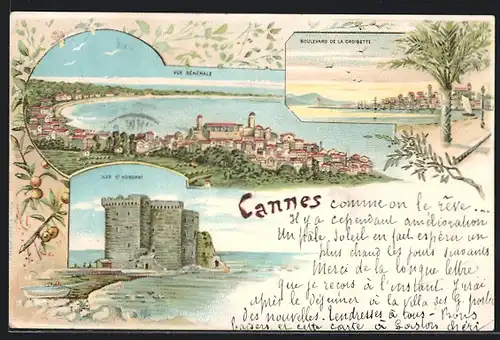 VUE GÉNÉRALE
BOULEVARD DE LA CROISETTE
ILES St HONORAT
Cannes comme on le rêve...
Il y a cependant amélioration
Un pâle soleil en fait espérer un
plus chaud les jours suivants
Merci de la longue lettre
que je reçois à l'instant. J'irai
après le déjeuner à la villa des G. porter
des nouvelles. Tendresses à tous - Bons
baisers et cette carte à Gaston chéri